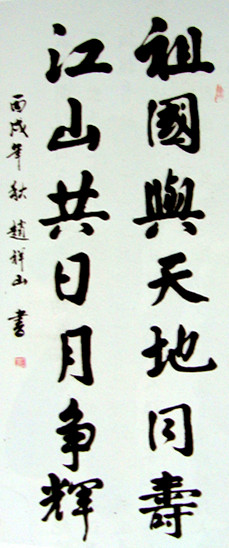 祖國與天地同壽
江山共日月争輝
丙戌年秋趙祥山書